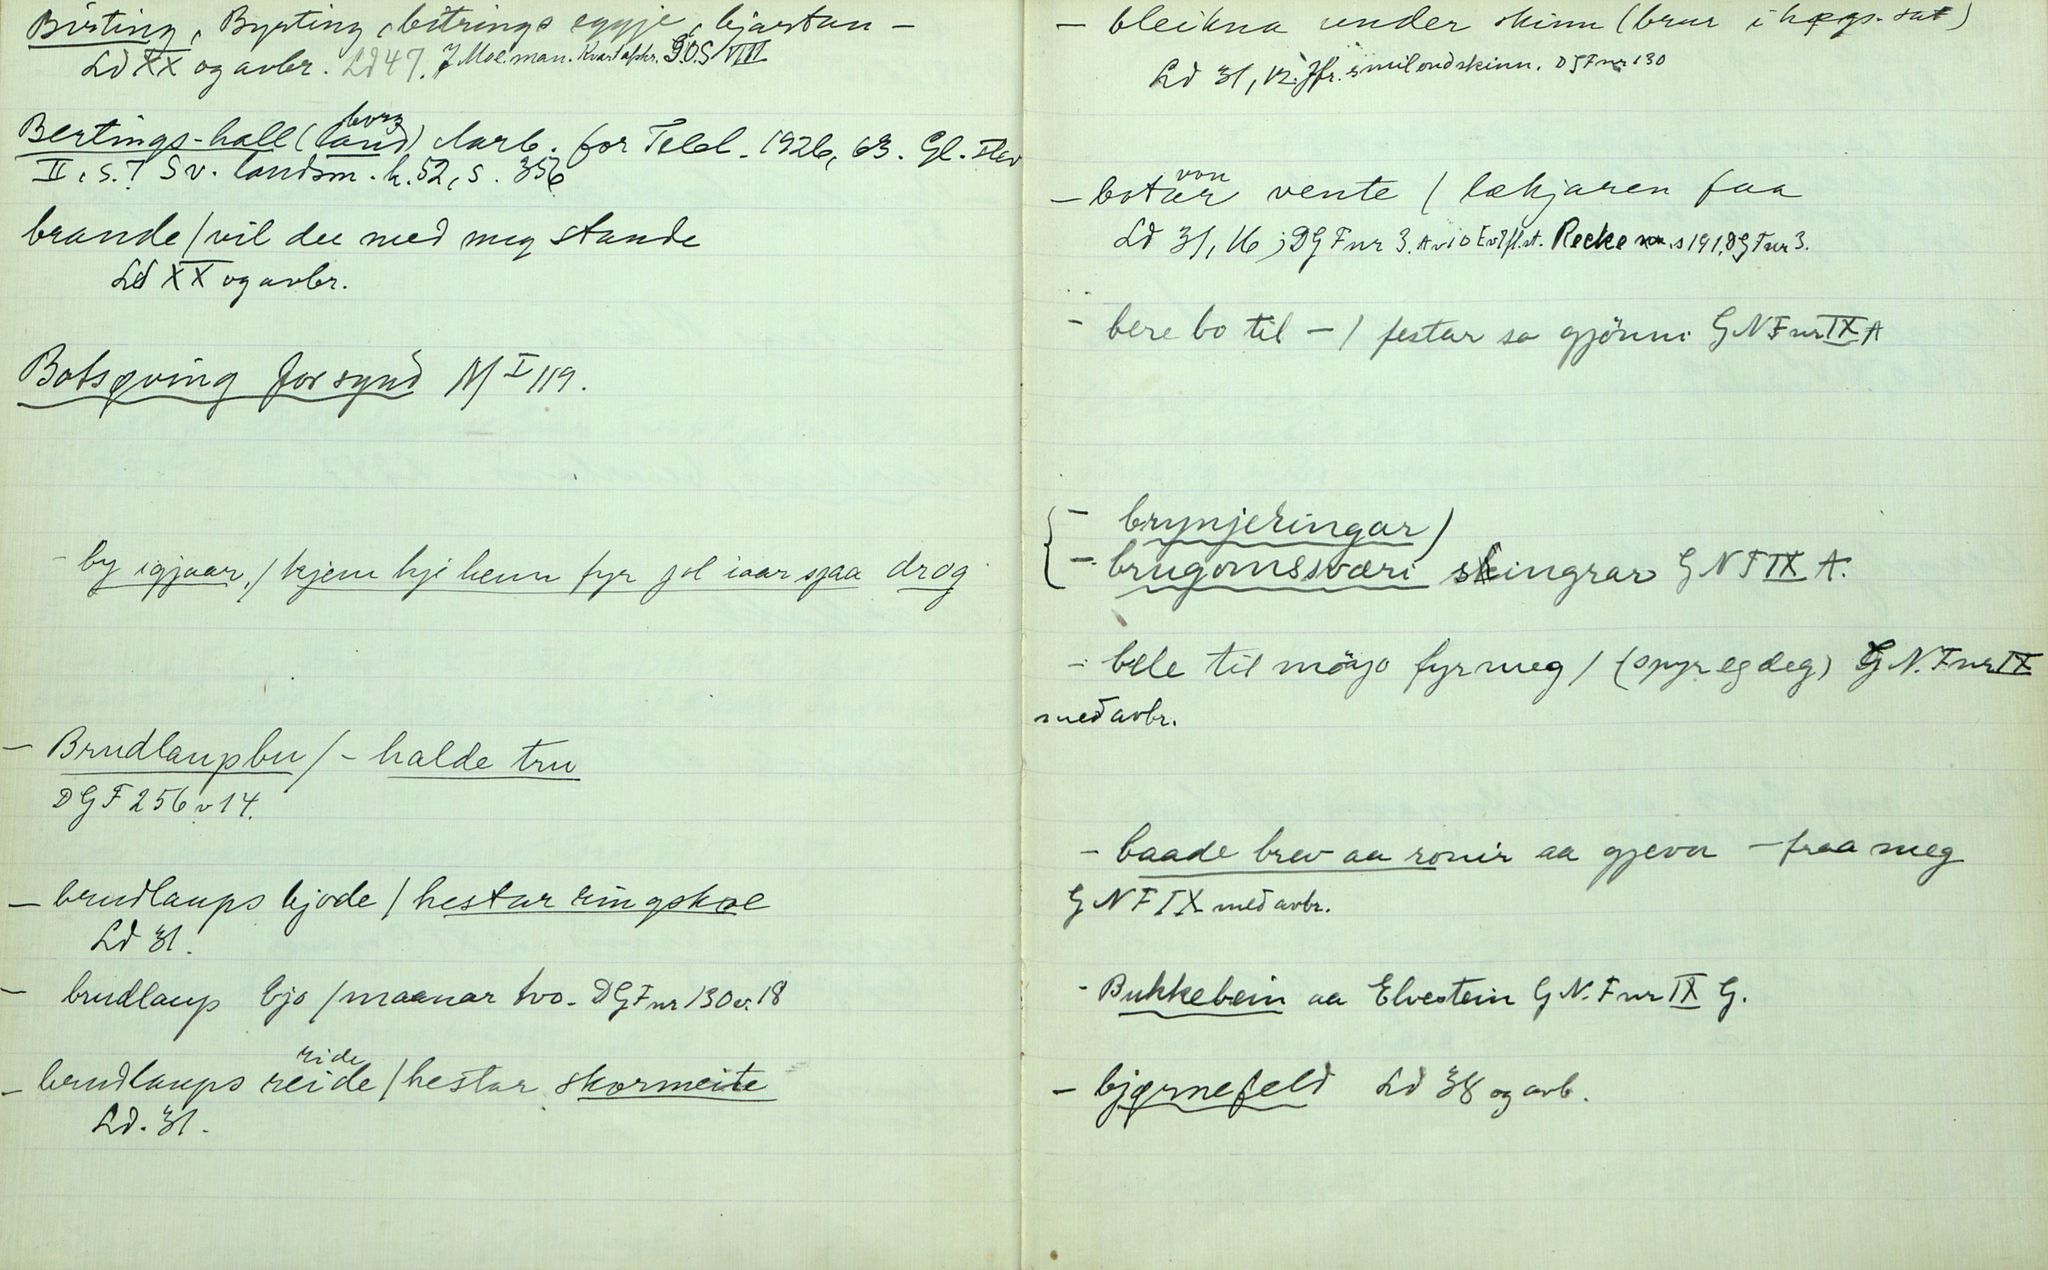 Birting, Byrting, bitrings eggje, hjartan –
Ld XX og avbr. Ld 47. J Moe. man. Kvardafskr. GDS VIII
borg
Bertings-hall (land) Aarb. for Telel. 1926, 63. Gl.
II, s.7 Sv. landsm. h.52, s. 356
brande / vil du med meg stande
Ld XX og avbr.
Botsøving for synd M I 119.
- by igjaar, / kjem hji henn fyr jol iaar spaa drog
– Brudlaupbu / - halde tru
DGF 256 v 14.
– brudlaups bjode / hestar ringskoe
Ld 31.
– brudlaup bjo / maanar tvo. DGF nr 130 v. 18
ride
– brudlaups reide / hestar skormeite
Ld. 31.
– bleikna under skinn (brur i høgs. sat)
Ld 31, 12. Jfr. smil ond skinn. DGF nr 130
von
– botar vente / lækjaren faa
Ld 31, 16; DGF nr 3. A v 10 Reeke s 191, DGF nr 3.
- bere bo til – / festar so gjönni GNF nr IX A
- brynjeringar /
- brugomssværi skingrar GNF IX A.
- bele til möyjo fyr meg / (spyr eg deg) GN.F nr IX
med avbr.
- baade brev aa ronir aa gjeva – fraa meg
GNF IX med avbr.
- Bukkebein aa Elvestein GN.F nr IX G.
– bjørnefeld Ld 38 og avb.